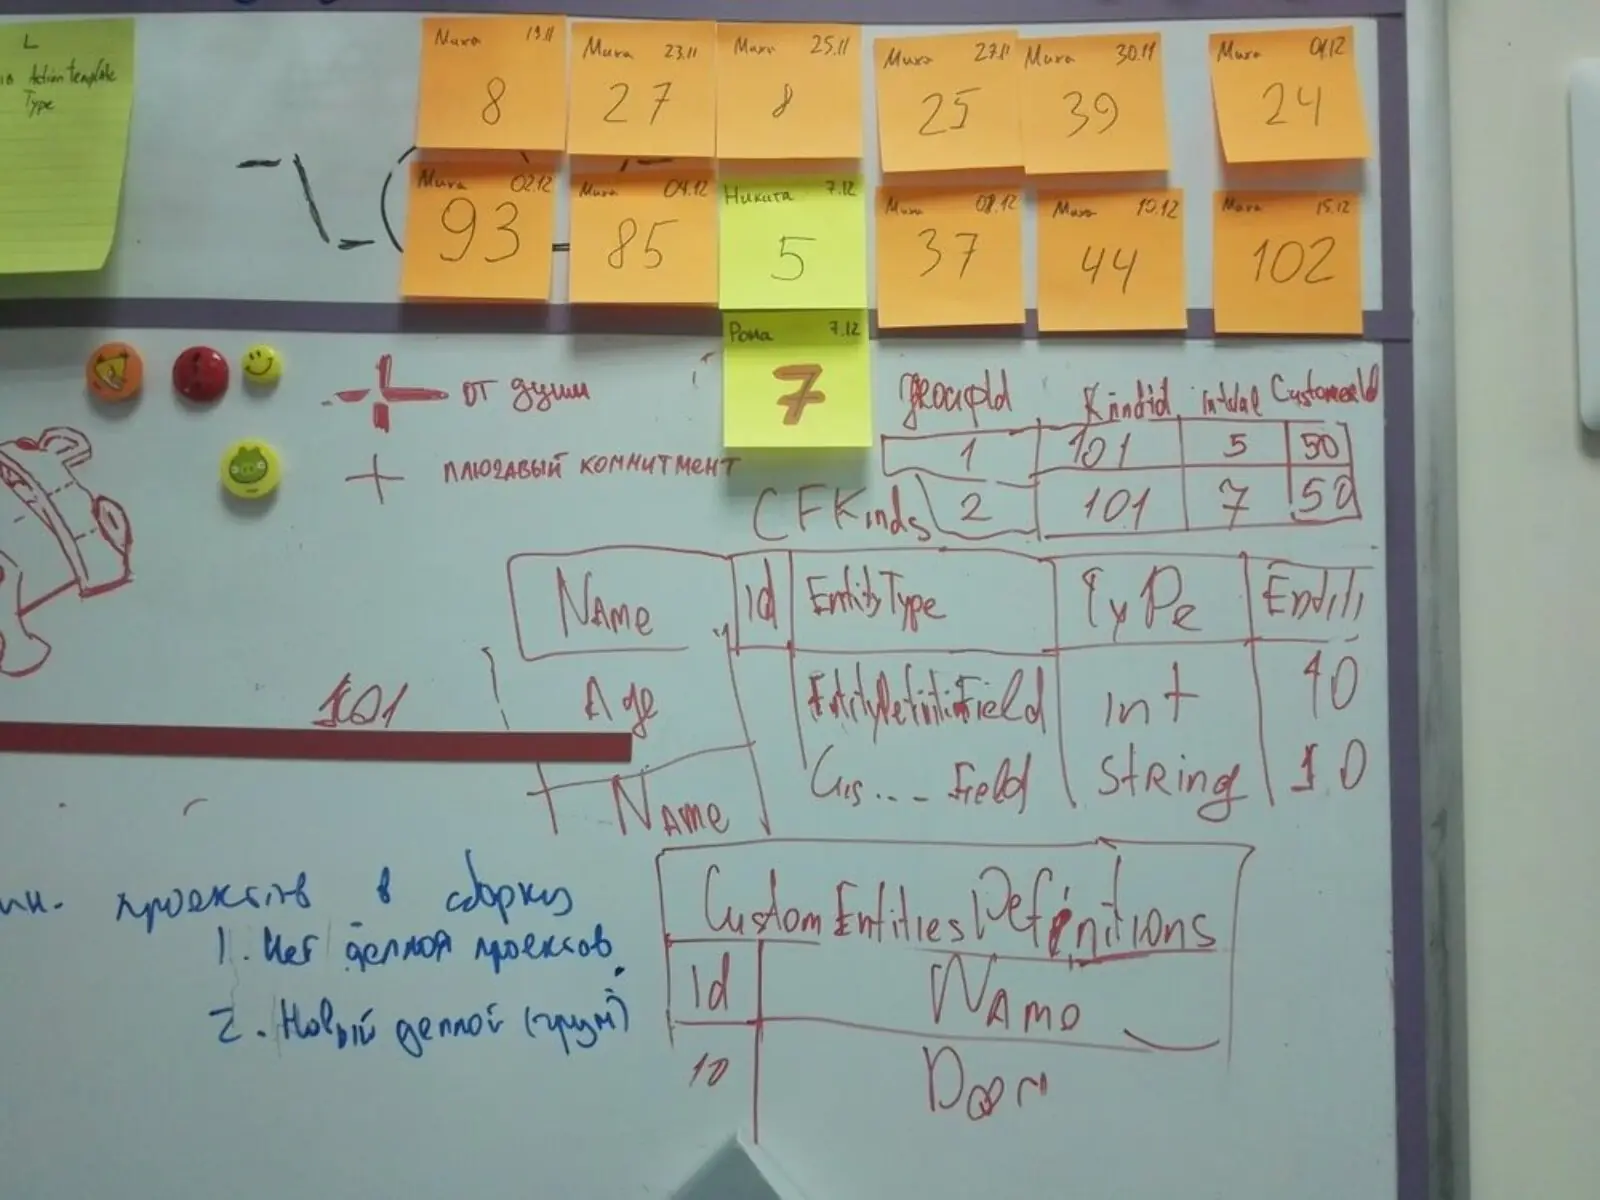 L
Action Template
Type
Миха 19.11
8
Миха 23.11
27
Миха 25.11
8
Миха 27.11
25
Миха 30.11
39
Миха 01.12
24
Миха 02.12
93
Миха 04.12
85
Никита 7.12
5
Миха 08.12
37
Миха 10.12
44
Миха 15.12
102
Рома 7.12
7
от души
плюгавый коммитмент
GroupId KindId IntVal CustomerId
1 101 5 50
2 101 7 50
CFKinds
Name Id EntityType Type Entiti
Age EntityDefinitiField int 10
Name Cus... Field String 10
101
CustomEntitiesDefinitions
Id Name
10 Door
проектов в сборку
1. Нет деплоя проектов
2. Новый деплой